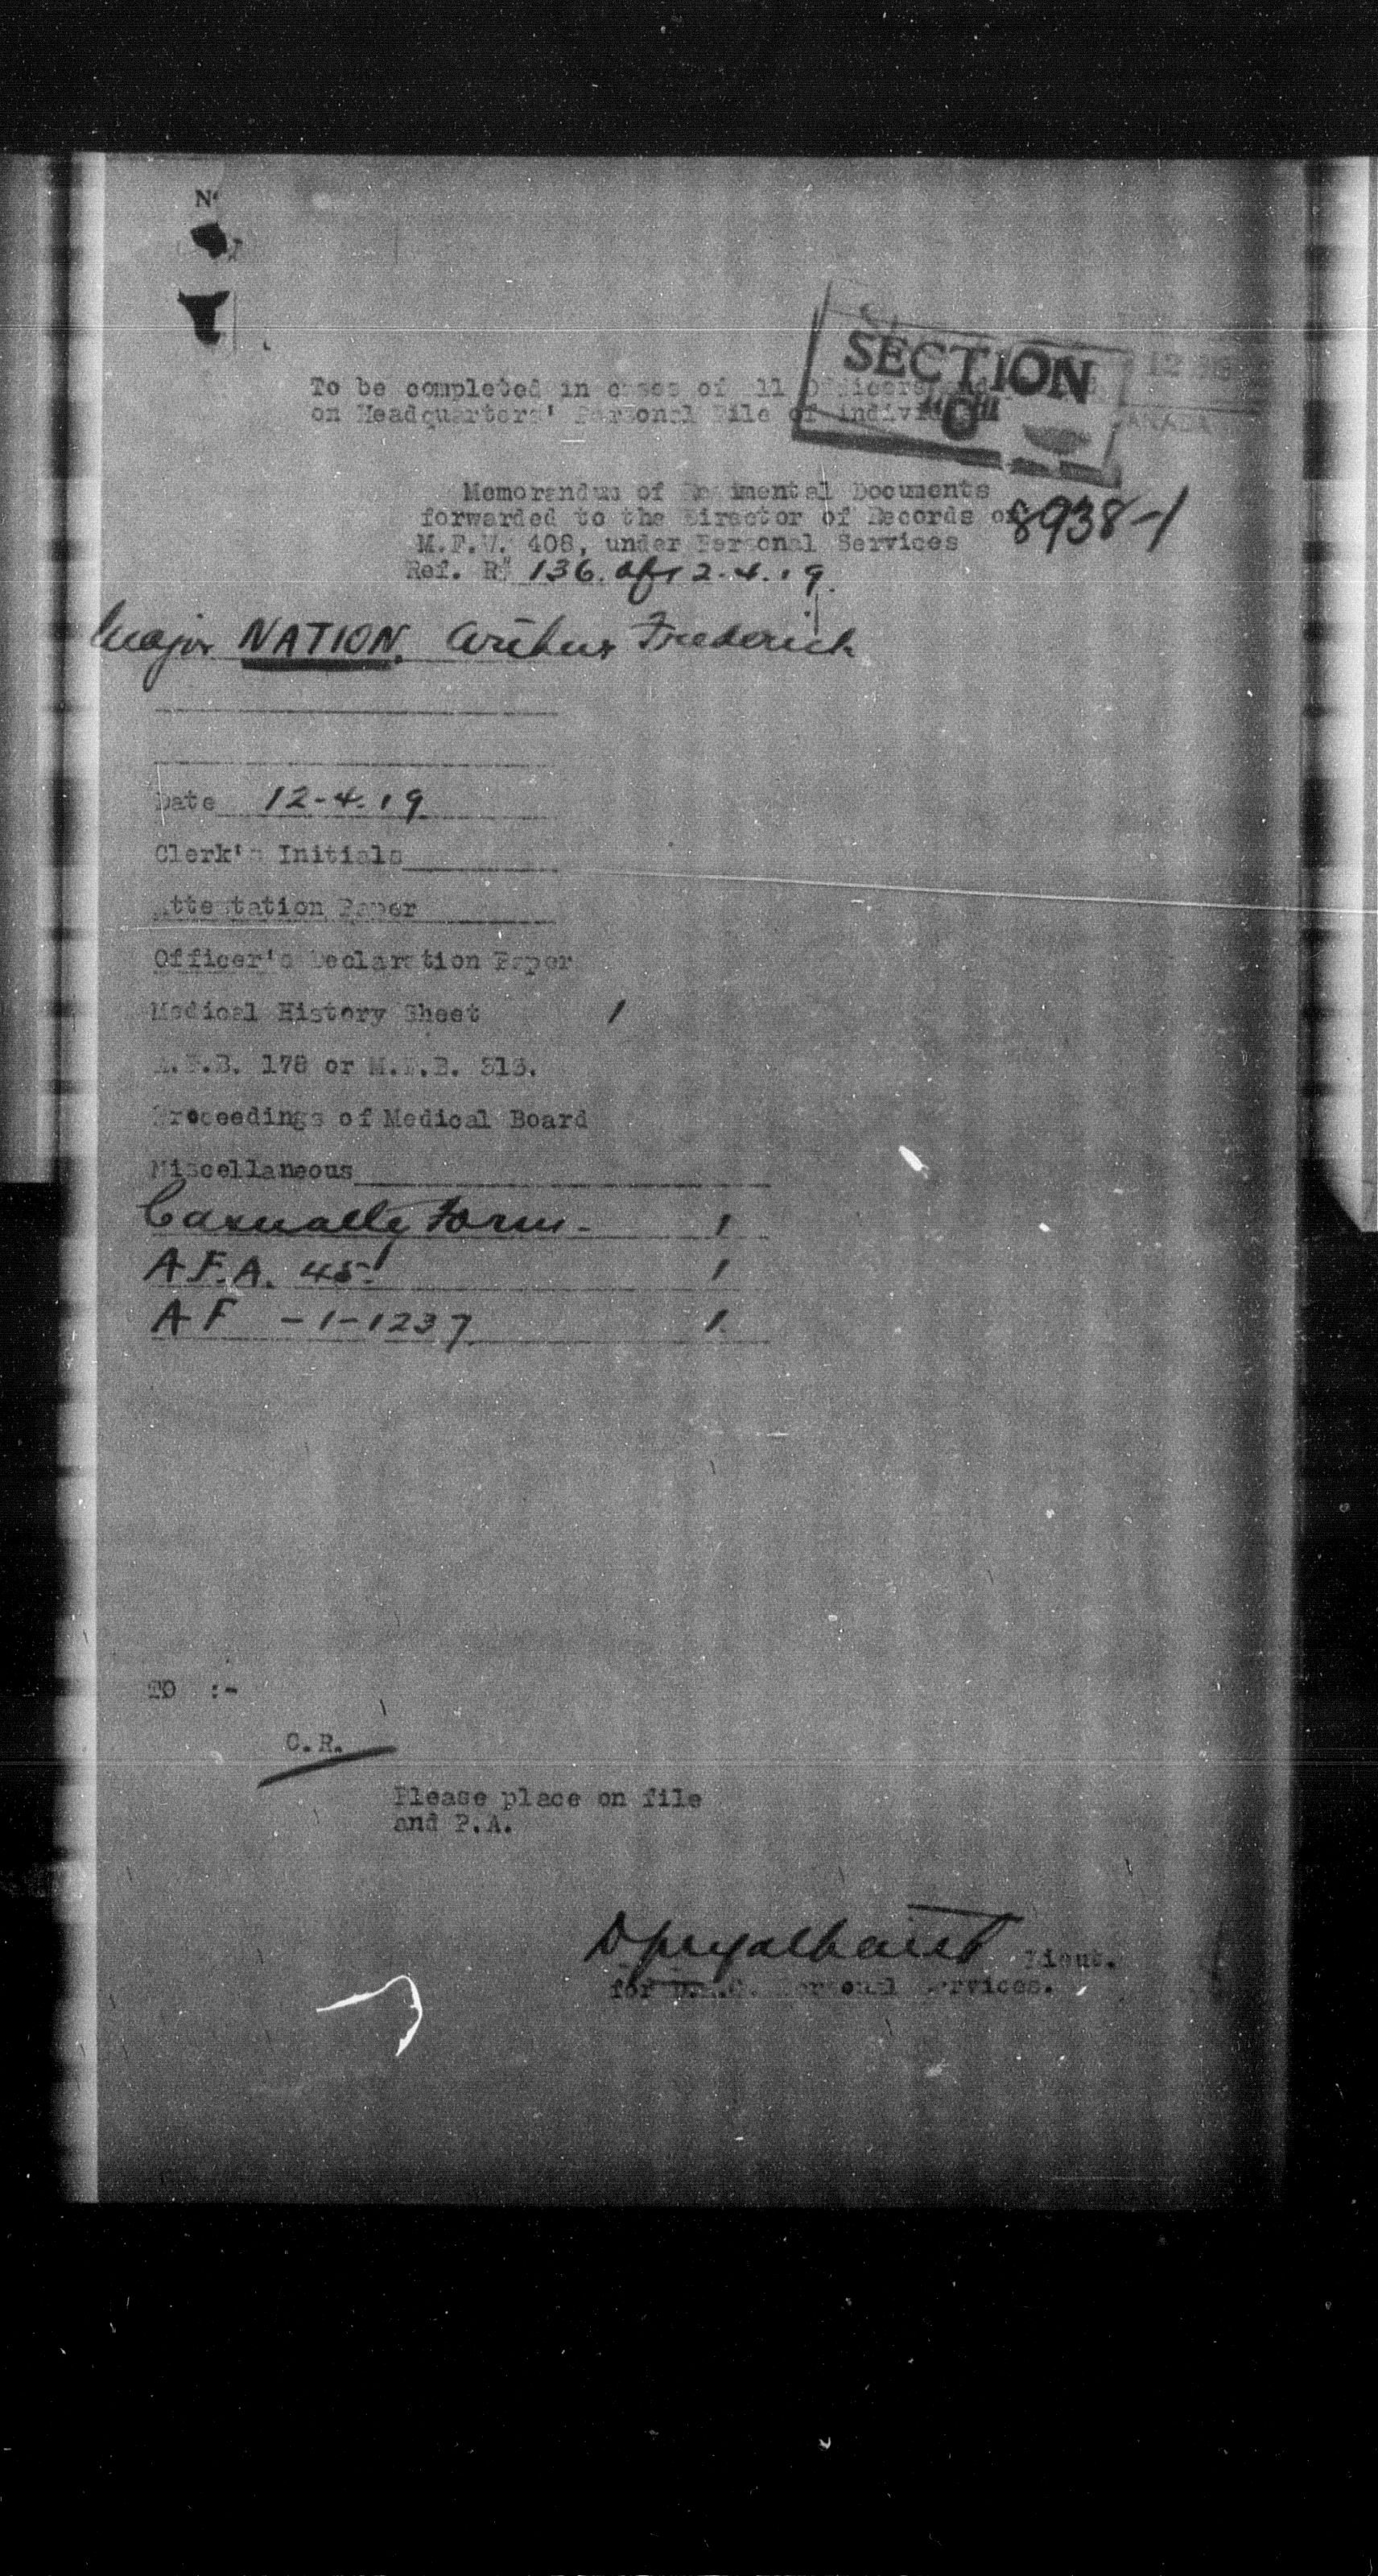 SECTION
"C"
To be completed in cases of all Officers and
on Headquarters' Personal File of
CANADA
Memorandum of Regimental Documents
forwarded to the Director of Records on
8938-1
M.F.W. 408, under Personal Services
Ref. R. 136. of 2.4.19.
Major NATION, Arthur Frederick
Date 12-4.19
Clerk's Initials
Attestation Paper
Officer's Declaration Paper
Medical History Sheet 1
A.F.B. 178 or M.F.B. 313.
Proceedings of Medical Board
Miscellaneous
Casualty Form - 1
A.F.A. 45. 1
A F -1-1237 1.
TO :-
C.R.
Please place on file
and P.A.
Lieut.
for Personal Services.